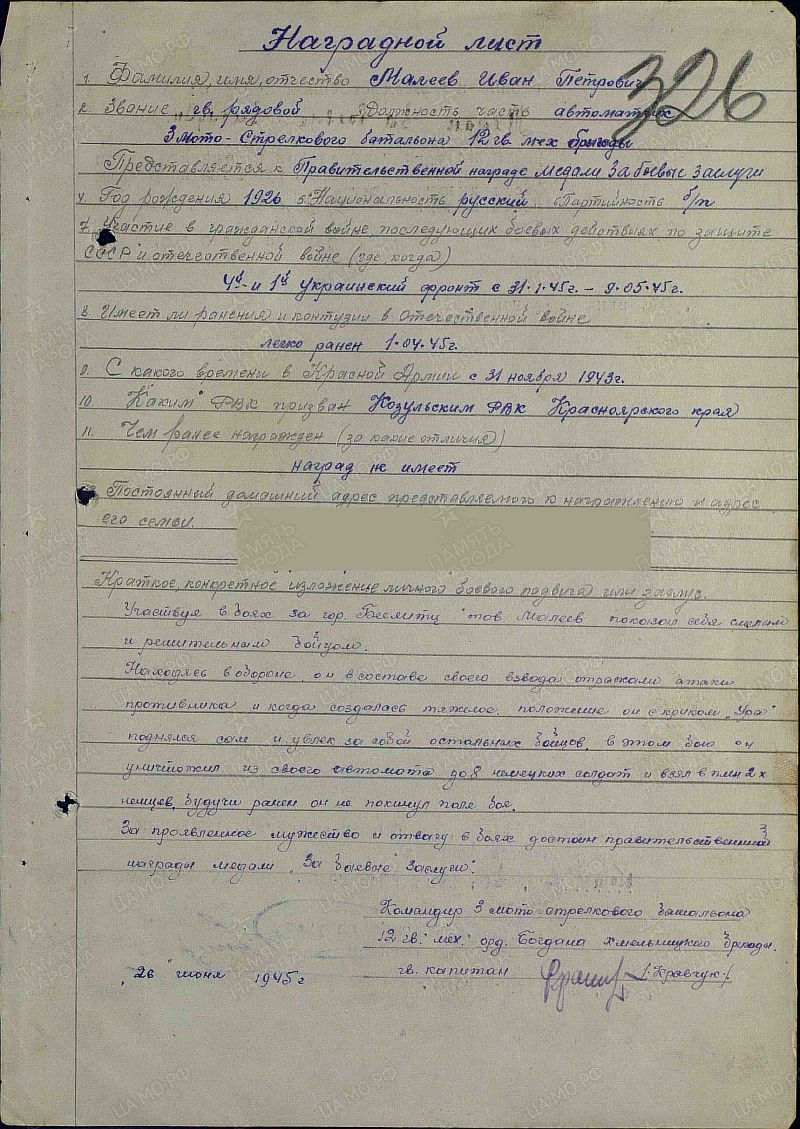 Наградной лист
326
1. Фамилия, имя, отчество Малеев Иван Петрович
2. Звание гв. рядовой Должность часть автоматчик
3 Мото-Стрелкового батальона 12 гв. мех бригады
Представляется к Правительственной награде медали За боевые заслуги
4. Год рождения 1926 5. Национальность русский 6. Партийность б/п
7. Участие в гражданской войне, последующих боевых действиях по защите
СССР и отечественной войне (где, когда)
4й и 1й Украинский фронт с 31.1.45г. – 9.05.45г.
8. Имеет ли ранения и контузии в Отечественной войне
легко ранен 1.04.45г.
9. С какого времени в Красной Армии с 31 ноября 1943г.
10. Каким РВК призван Козульским РВК Красноярского края
11. Чем ранее награжден (за какие отличия)
наград не имеет
Постоянный домашний адрес представляемого к награждению и адрес
его семьи.
Краткое, конкретное изложение личного боевого подвига или заслуг.
Участвуя в боях за гор. тов Малеев показал себя смелым
и решительным бойцом.
Находясь в обороне, он в составе своего взвода отражали атаки
противника и когда создалась тяжелое положение он с криком „Ура"
поднялся сам и увлек за собой остальных бойцов, в этом бою он
уничтожил из своего автомата до 8 немецких солдат и взял в плен 2х
немцев, будучи ранен он не покинул поле боя.
За проявленное мужество и отвагу в боях достоин правительственной
награды медали „За боевые заслуги".
Командир 3 мото-стрелкового батальона
12 гв. мех. орд. Богдана Хмельницкого бригады.
гв. капитан /Кравчук/
„26" июня 1945г
ПАМЯТЬ НАРОДА
ЦАМО.РФ